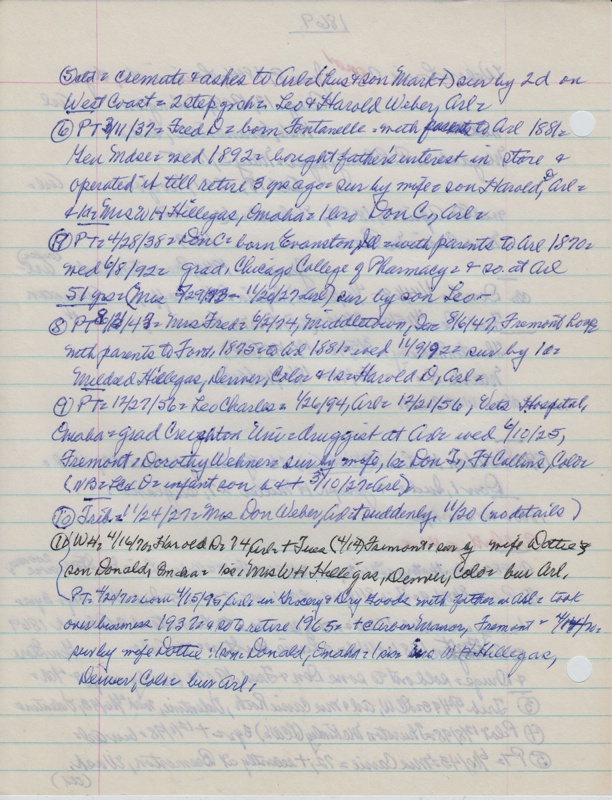 1869
cremate & ashes to Arl= (hus & son Mark +) sur by 2d on
West Coast = 2 step grch = Leo & Harold Weber, Arl=
⑥ PT= 3/11/37= Fred D= born Fontanelle = with parents to Arl 1881=
Gen Mdse= wed 1892= bought father's interest in store &
operated it till retire 3 yrs ago= sur by wife= son Harold, D Arl=
& 1d= Mrs W H Hillegas, Omaha= 1 bro Don C., Arl=
⑦ PT= 4/28/38= Don C= born Evanston, Ill= with parents to Arl 1870=
wed 6/8/92= grad, Chicago College of Pharmacy= & so. at Arl
51 yrs= (Mrs 11/20/27 Arl) sur by son Leo=
⑧ PT= Mrs Fred= 6/2/74, Middletown, 8/6/43, Fremont Hosp=
with parents to 1875= to Arl 1881= wed 11/9/92= sur by 1d=
Mildred Hillegas, Denver, Colo & 1s= Harold D, Arl=
⑨ PT= 12/27/56= Leo Charles= 1/26/94, Arl= 12/21/56, Vets Hospital,
Omaha= grad Creighton Univ= druggist at Arl= wed 6/10/25,
Fremont= Dorothy Wehner= sur by wife, 1s= Don Jr, Ft Collins, Colo
(NB= Fred D= infant son b & + 3/10/27= Arl)
⑩ Trib= 11/24/27= Mrs Don Weber, Arl + suddenly, 11/20 (no details)
⑪ WH= Harold D= 74, Arl= + Tues (4/14) Fremont= sur by wife Dottie=
son Donald, Omaha= 1sis= Mrs W H Hillegas, Denver, Colo= bur Arl.
PT= born 4/15/95, Arl= in Grocery & Dry Goods with father at Arl= took
over business 1937= & so to retire 1965= + Manor, Fremont=
sur by wife Dottie= 1 son= Donald, Omaha= 1 sis= Mrs W H Hillegas,
Denver, Colo= bur Arl.